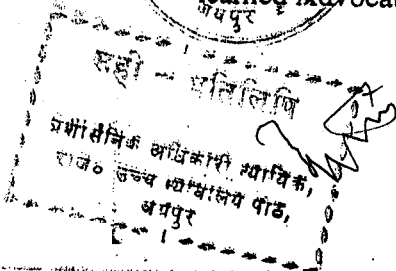 Learned Advocat
जयपुर
सही - प्रतिलिपि
प्रशासनिक अधिकारी न्यायिक,
राज० उच्च न्यायालय पीठ,
जयपुर